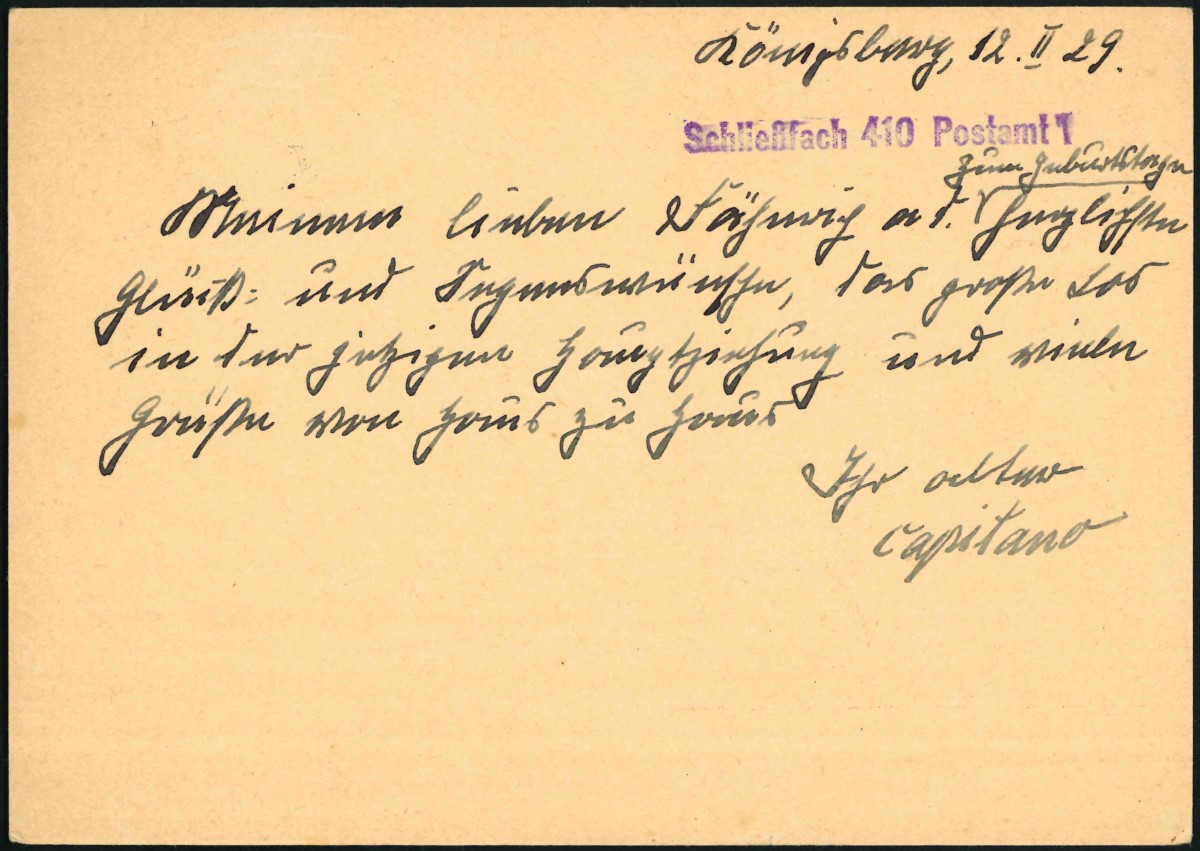 Königsberg, 12. II 29.
Schließfach 410 Postamt 1
zum Geburtstage
Meinem lieben Fähnrich a. d. herzlichste
Glück- und Segenswünsche, das große Los
in der jetzigen Hauptziehung und viele
Grüße von Haus zu Haus
Ihr alter
Capitano